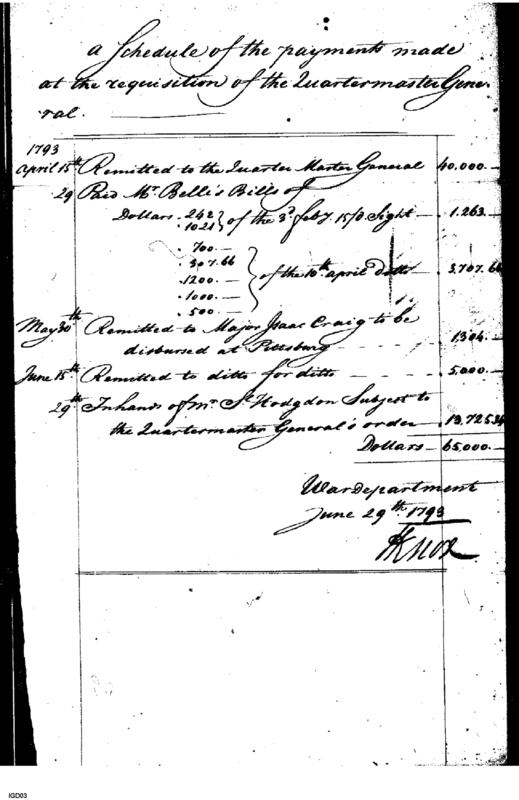 a Schedule of the payments made
at the requisition of the Quartermaster Gene-
ral.
1793
April 15th Remitted to the Quarter Master General 40,000.—
29 Paid Mr. Belli's Bills of
Dollars. 242
. 1021 } of the 3d. Feby. 15/d Sight — 1.263.—
. 700.—
. 307.66
. 1200.— } of the 10th april ditto — 3,707.66
. 1000.—
. 500.—
May 30th Remitted to Major Isaac Craig to be
disbursed at Pittsburg — 1,304.—
June 15th Remitted to ditto for ditto — 5,000.—
29th In hands of Mr. S. Hodgdon Subject to
the Quartermaster General's order 13,725.34
Dollars — 65,000.—
War department
June 29th. 1793
HKnox
IGD03